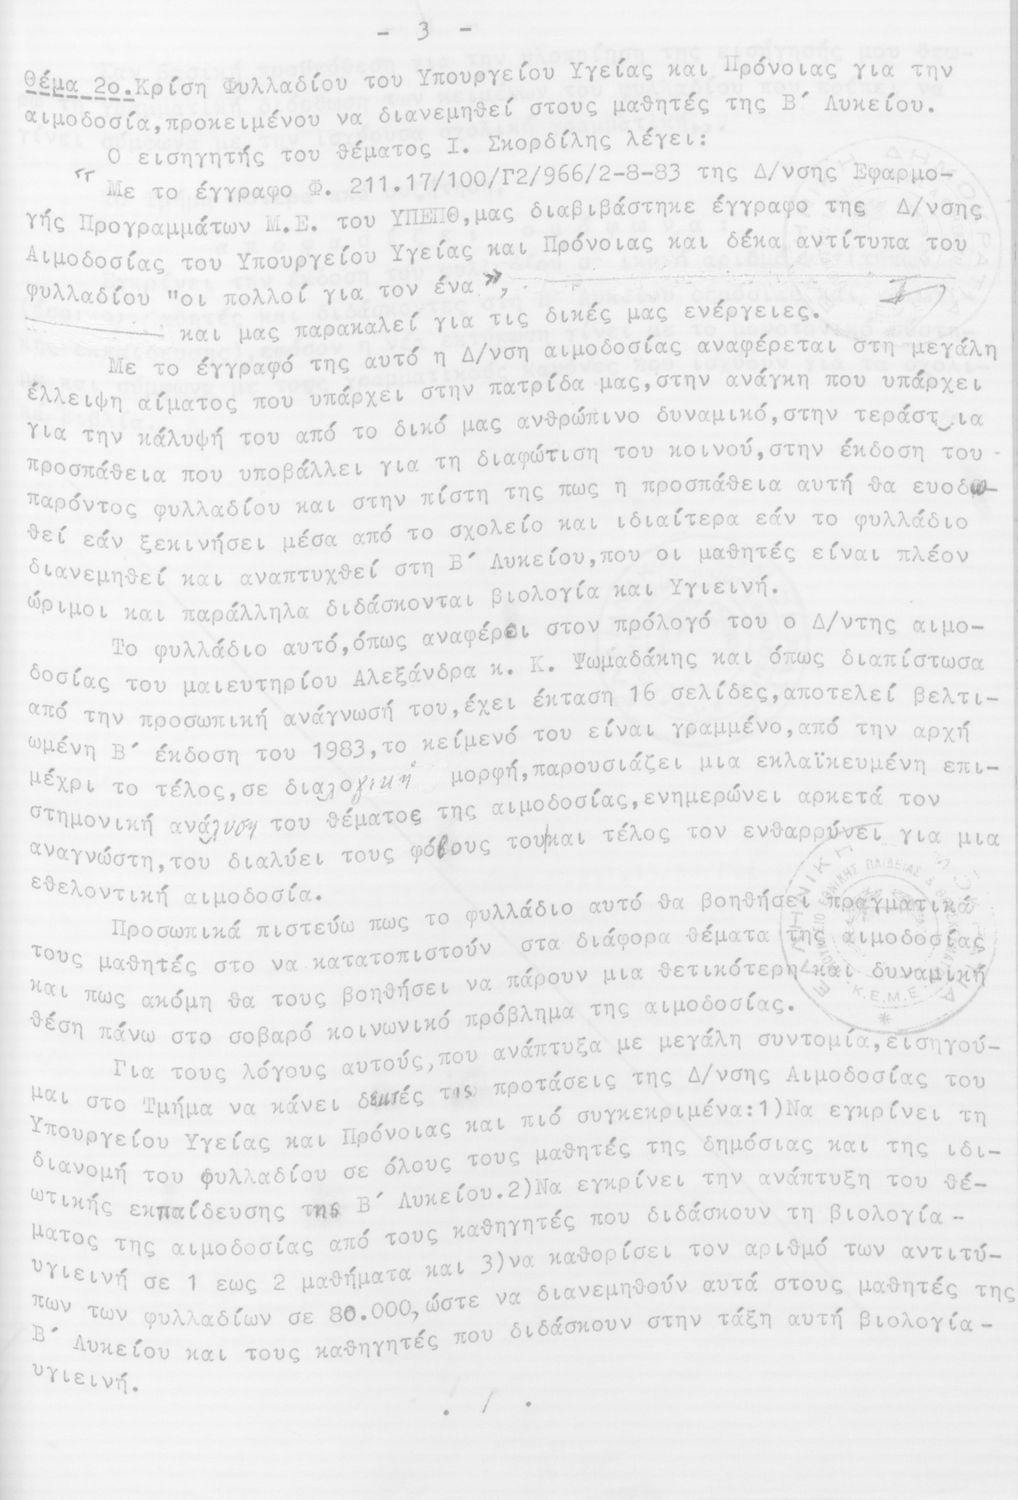 - 3 -
Θέμα 2ο.Κρίση Φυλλαδίου του Υπουργείου Υγείας και Πρόνοιας για την
αιμοδοσία,προκειμένου να διανεμηθεί στους μαθητές της Β´ Λυκείου.
Ο εισηγητής του θέματος Ι. Σκορδίλης λέγει:
“ Με το έγγραφο Φ. 211.17/100/Γ2/966/2-8-83 της Δ/νσης Εφαρμο-
γής Προγραμμάτων Μ.Ε. του ΥΠΕΠΘ,μας διαβιβάστηκε έγγραφο της Δ/νσης
Αιμοδοσίας του Υπουργείου Υγείας και Πρόνοιας και δέκα αντίτυπα του
φυλλαδίου "οι πολλοί για τον ένα»,
και μας παρακαλεί για τις δικές μας ενέργειες.
Με το έγγραφό της αυτό η Δ/νση αιμοδοσίας αναφέρεται στη μεγάλη
έλλειψη αίματος που υπάρχει στην πατρίδα μας,στην ανάγκη που υπάρχει
για την κάλυψή του από το δικό μας ανθρώπινο δυναμικό,στην τεράστια
προσπάθεια που υποβάλλει για τη διαφώτιση του κοινού,στην έκδοση του
παρόντος φυλλαδίου και στην πίστη της πως η προσπάθεια αυτή θα ευοδω-
θεί εάν ξεκινήσει μέσα από το σχολείο και ιδιαίτερα εάν το φυλλάδιο
διανεμηθεί και αναπτυχθεί στη Β´ Λυκείου,που οι μαθητές είναι πλέον
ώριμοι και παράλληλα διδάσκονται βιολογία και Υγιεινή.
Το φυλλάδιο αυτό,όπως αναφέρει στον πρόλογό του ο Δ/ντης αιμο-
δοσίας του μαιευτηρίου Αλεξάνδρα κ. Κ. Ψωμαδάκης και όπως διαπίστωσα
από την προσωπική ανάγνωσή του,έχει έκταση 16 σελίδες,αποτελεί βελτι-
ωμένη Β´ έκδοση του 1983,το κείμενό του είναι γραμμένο,από την αρχή
μέχρι το τέλος,σε διαλογική μορφή,παρουσιάζει μια εκλαϊκευμένη επι-
στημονική ανάλυση του θέματος της αιμοδοσίας,ενημερώνει αρκετά τον
αναγνώστη,του διαλύει τους φόβους του και τέλος τον ενθαρρύνει για μια
εθελοντική αιμοδοσία.
Προσωπικά πιστεύω πως το φυλλάδιο αυτό θα βοηθήσει πραγματικά
τους μαθητές στο να κατατοπιστούν στα διάφορα θέματα της αιμοδοσίας
και πως ακόμη θα τους βοηθήσει να πάρουν μια θετικότερη και δυναμική
θέση πάνω στο σοβαρό κοινωνικό πρόβλημα της αιμοδοσίας.
Για τους λόγους αυτούς,που ανάπτυξα με μεγάλη συντομία,εισηγού-
μαι στο Τμήμα να κάνει δεκτές τις προτάσεις της Δ/νσης Αιμοδοσίας του
Υπουργείου Υγείας και Πρόνοιας και πιό συγκεκριμένα:1)Να εγκρίνει τη
διανομή του φυλλαδίου σε όλους τους μαθητές της δημόσιας και της ιδι-
ωτικής εκπαίδευσης της Β´ Λυκείου.2)Να εγκρίνει την ανάπτυξη του θέ-
ματος της αιμοδοσίας από τους καθηγητές που διδάσκουν τη βιολογία-
υγιεινή σε 1 εως 2 μαθήματα και 3)να καθορίσει τον αριθμό των αντιτύ-
πων των φυλλαδίων σε 80.000,ώστε να διανεμηθούν αυτά στους μαθητές της
Β´ Λυκείου και τους καθηγητές που διδάσκουν στην τάξη αυτή βιολογία-
υγιεινή.
. / .